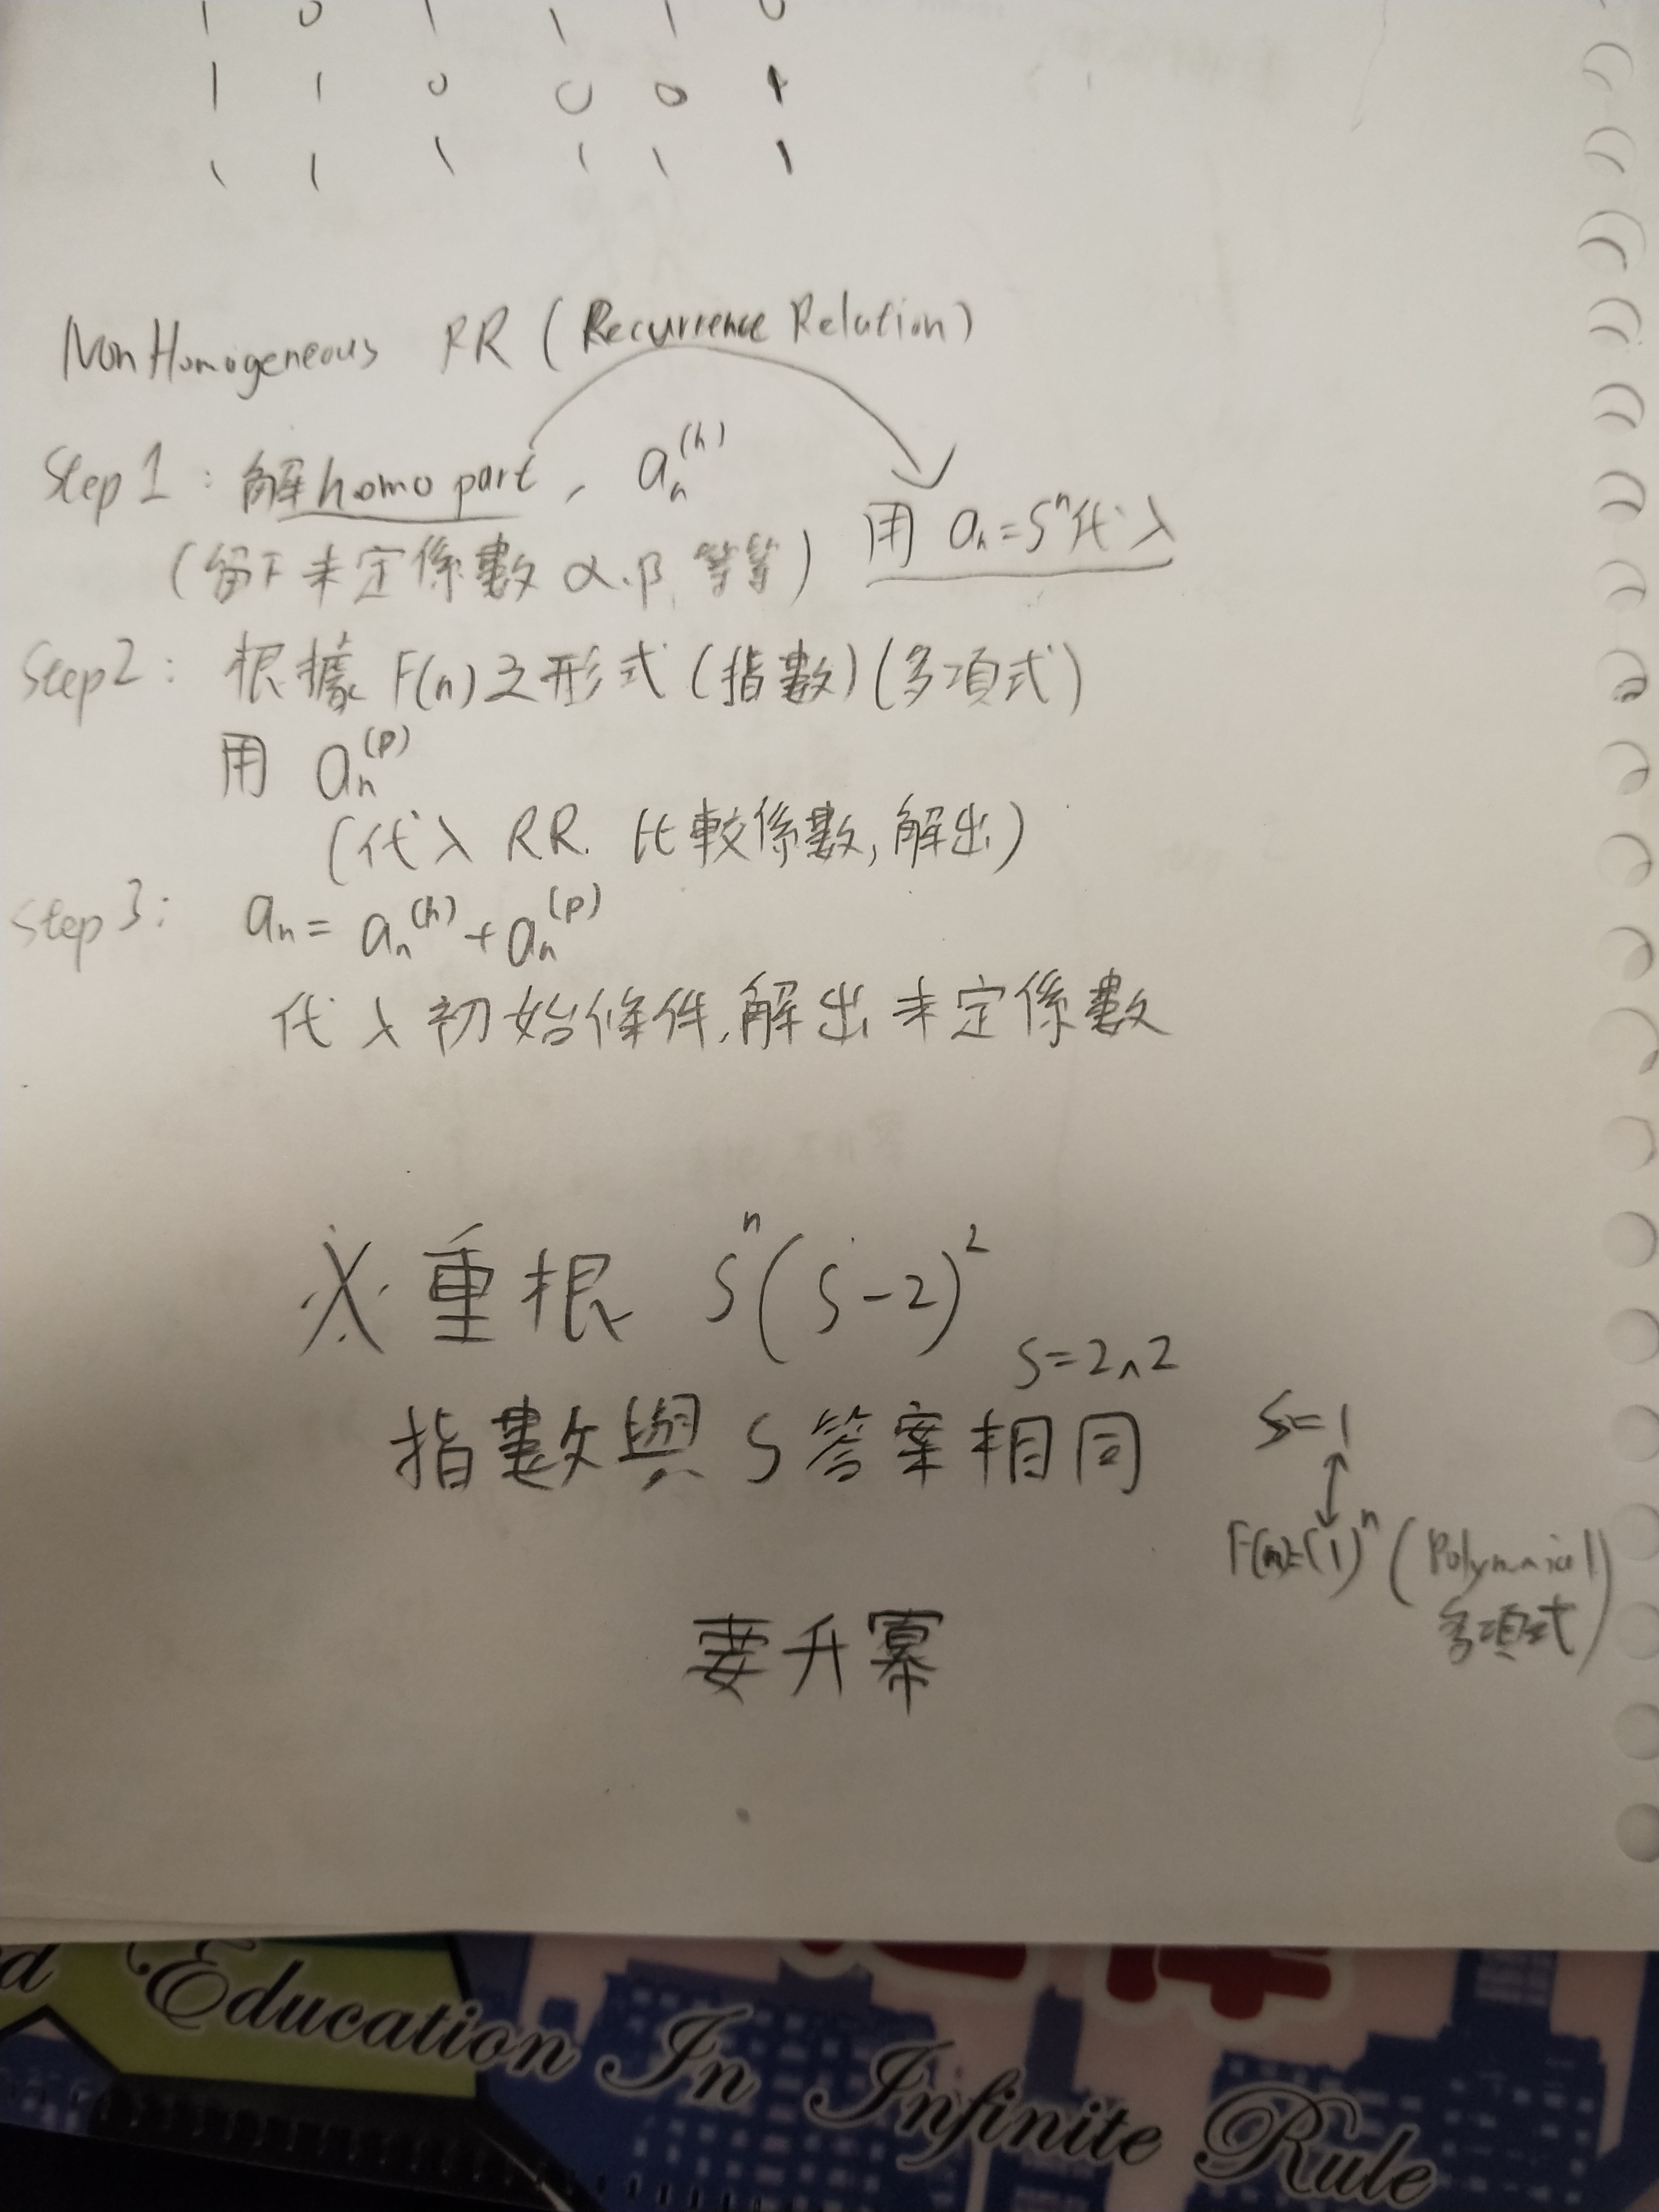 1 0 1 1 1 0
1 1 0 0 0 1
1 1 1 1 1 1
NonHomogeneous RR (Recurrence Relation)
Step 1 : 解 homo part, aₙ⁽ʰ⁾
用 aₙ = Sⁿ代入
(留下未定係數 α、β 等等)
Step 2 : 根據 F(n) 之形式 (指數)(多項式)
用 aₙ⁽ᵖ⁾
(代入 RR. 比較係數, 解出)
Step 3 : aₙ = aₙ⁽ʰ⁾ + aₙ⁽ᵖ⁾
代入初始條件, 解出未定係數
※ 重根 Sⁿ(S-2)²
S=2、2
指數與 S 答案相同
S=1
↕
F(n)=(1)ⁿ (Polynomial
多項式)
要升冪
Education In Infinite Rule